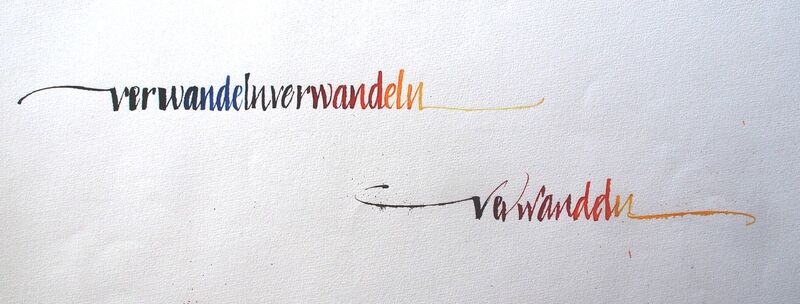 verwandelnverwandeln
verwandeln